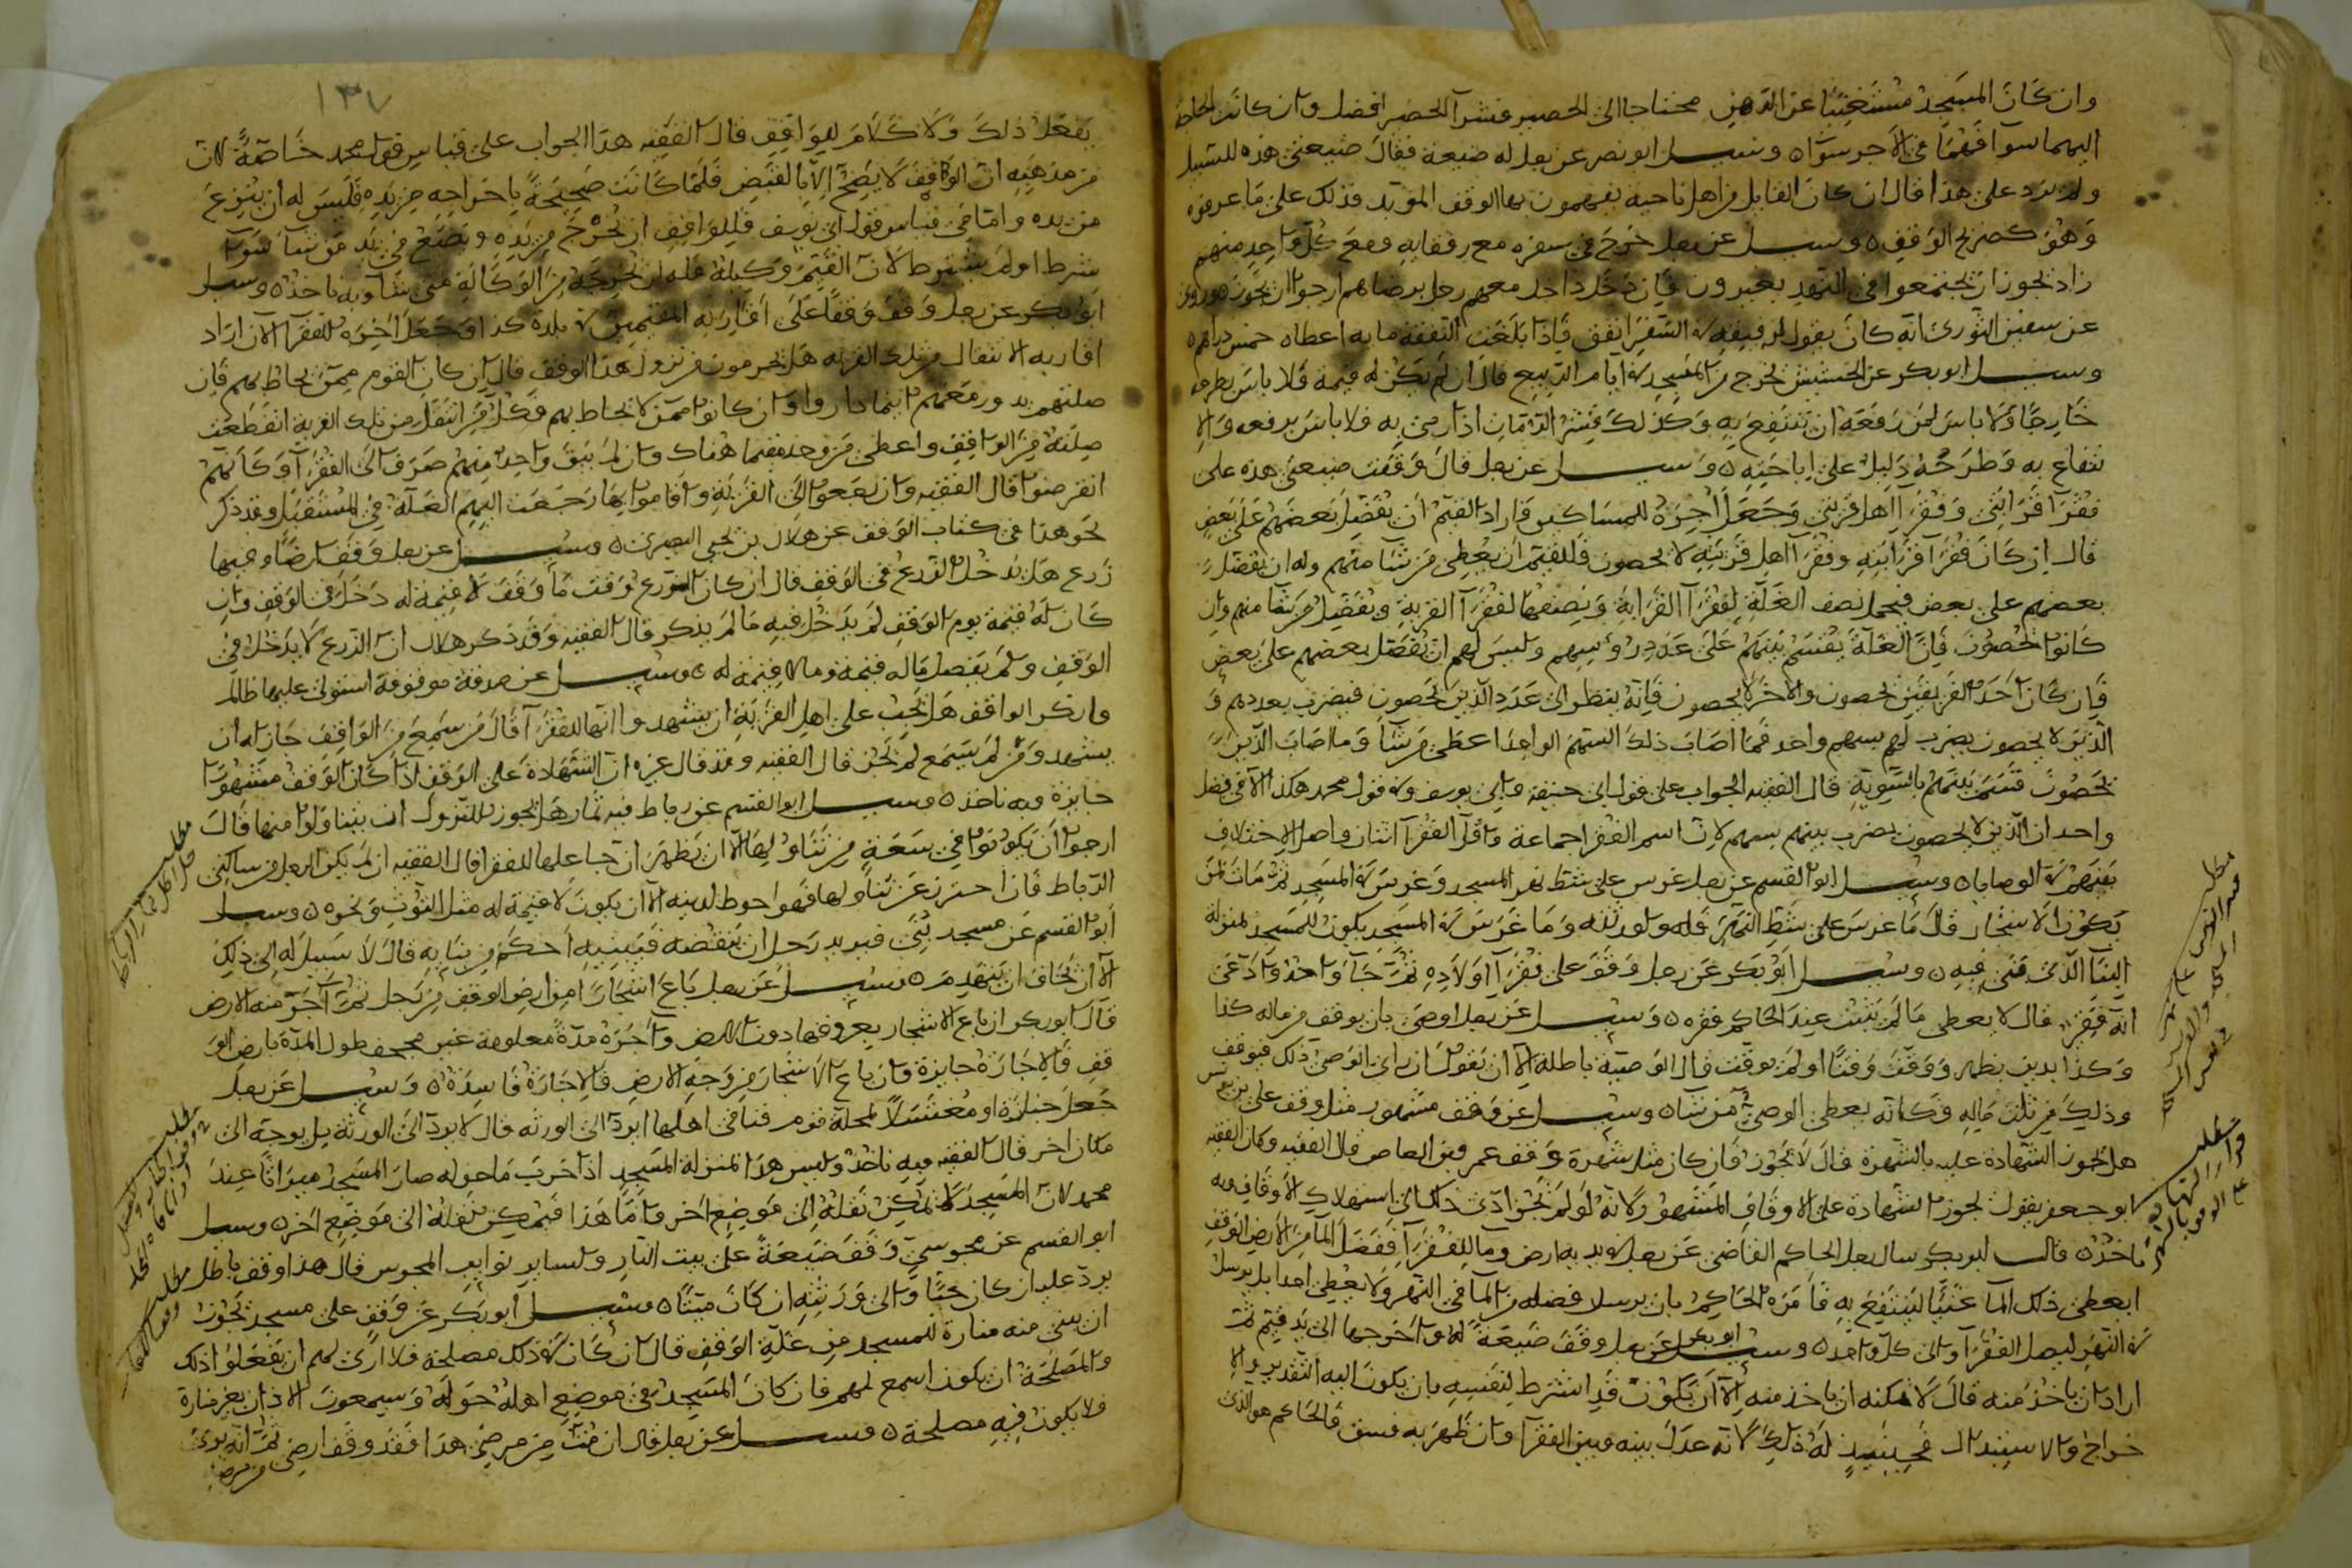 وان كان المسجد مستغنيا عن الدهن محتاجا الى الحصير فشرآ الحصير افضل وان كانت الحاجة
اليهما سوا فهما في الاجر سوآ ٥ وسيل ابو نصر عن رجل له ضيعة فقال ضيعتي هذه للسبيل
ولم يزد على هذا قال ان كان القايل من اهل ناحية يفهمون بها الوقف المؤبد فذلك على ما عرفوه
وهو كصريح الوقف ٥ وسيل عن رجل خرج في سفره مع رفقايه ومع كل واحد منهم
زاد يجوز ان يجتمعوا في التهد فان دخل واحد معهم رجل برضاهم ارجوا ان يجوز وروى
عن سفين الثورى انه كان يقول لرفيقه في السفر انفق فاذا بلغت النفقة مايه اعطاه خمسين درهم ٥
وسيل ابو بكر عن الحشيش يخرج من المسجد في ايام الربيع قال ان لم يكن له قيمة فلا باس بطرحه
خارجا ولا باس لمن رفعه ان ينتفع به وكذلك قشر الرمان اذا رمى به فلا باس برفعه والا
نتفاع به وطرحه دليل على اباحته ٥ وسيل عن رجل قال وقفت ضيعتي هذه على
فقرآ قرابتي وفقرآ اهل قريتي وجعل اخره للمساكين فاراد القيم ان يفضل بعضهم على بعض
قال ان كان فقرآ قرابته وفقرآ اهل قريته لا يحصون فللقيم ان يعطى من شا منهم وله ان يفضل
بعضهم على بعض فيجعل نصف الغلة لفقرآ القرابة ونصفها لفقرآ القرية ويفضل من شا منهم وان
كانوا يحصون فان الغلة يقسم بينهم على عدد رؤسهم وليس لهم ان يفضل بعضهم على بعض
فان كان احد الفريقين يحصون والاخر لا يحصون فانه ينظر الى عدد الذين يحصون فيضرب بعددهم و
الذين لا يحصون يضرب لهم بسهم واحد فما اصاب ذلك السهم الواحد اعطى من شا وما اصاب الذين
يحصون قسم بينهم بالسوية قال الفقيه الجواب على قول ابى حنيفة وابى يوسف وفى قول محمد هكذا الا فى فصل
واحد ان الذين لا يحصون يضرب بينهم بسهم لان اسم الفقرا جماعة واقل الفقرآ اثنان واصل الاختلاف
بينهم في الوصايا ٥ وسيل ابو القسم عن رجل غرس على شط نهر المسجد وغرس في المسجد ثم مات لمن
يكون الاشجار قال ما غرس على شط النهر فله ولورثته وما غرس في المسجد يكون للمسجد بمنزلة
البنآ الذى بنى فيه ٥ وسيل ابو بكر عن رجل وقف على فقرآ اولاده ثم جآ واحد وادعى
انه فقير قال لا يعطى ما لم يثبت عند الحاكم فقره ٥ وسيل عن رجل اوصى بان يوقف من ماله كذا
وكذا بدين يظهر ووقت وقتا اولم يوقت قال الوصية باطلة الا ان يقول ان راى الوصى ذلك فيوقف
وذلك من ثلث ماله وكانه يعطى الوصي من شا ٥ وسيل عن وقف مشهور مثل وقف على بن عيسى
هل يجوز الشهادة عليه بالشهرة قال لا يجوز فان كان مثل شهرة وقف عمرو بن العاص قال الفقيه وكان الفقيه
ابو جعفر يقول يجوز الشهادة على الاوقاف المشهورة لانه لو لم يجز ادى ذلك الى استهلاك الاوقاف وبه
ناخذ ٥ قال ابو بكر سال رجل الحاكم القاضى عن رجل في يديه ارض ومآ للفقرآ ففضل المآ من الارض الوقف
ايعطى ذلك المآ غنيا لينتفع به فامره الحاكم بان يرسل فضله من المآ فى النهر ولا يعطى احدا بل يرسل
في النهر ليصل الفقرآ والى كل واحد ٥ وسيل ابو بكر عن رجل وقف ضيعة له واخرجها الى يد قيم ثم
اراد ان ياخذ منه قال لا يمكنه ان ياخذ منه الا ان يكون قد اشترط لنفسه بان يكون اليه التقدير والا
خراج والاستبدال فحينيذ له ذلك لانه عدل بينه وبين الفقرآ وان ظهر به فسق فالحاكم هو الذى
١٣٧
يفعل ذلك ولا كلام للواقف قال الفقيه هذا الجواب على قياس قول محمد خاصة لان
من مذهبه ان الوقف لا يصح الا بالقبض فلما كانت صحيحة باخراجه من يده فليس له ان ينزع
من يده واما فى قياس قول ابى يوسف فللواقف ان يخرج من يده ويضع فى يد من شا سوآ
شرط اولم يشترط لان القيم وكيله فله ان يخرجه من الوكالة متى شآ وبه ناخذ ٥ وسيل
ابو بكر عن رجل وقف وقفا على اقاربه المقيمين في بلدة كذا وجعل اخره للفقرآ الان اراد
اقاربه الانتقال من تلك القرية هل يحرمون من نزول هذا الوقف قال ان كان القوم ممن يحاط بهم فان
صلتهم يدور معهم اينما داروا وان كانوا ممن لا يحاط بهم فكل من انتقل من تلك القرية انقطعت
صلته من الواقف واعطى من وجد مقيما هناك وان لم يبق واحد منهم صرف الى الفقرآ وكانهم
انقرضوا قال الفقيه وان رجعوا الى القرية واقاموا بها رجعت اليهم الغلة فى المستقبل وقد ذكر
نحو هذا فى كتاب الوقف عن هلال بن يحيى البصرى ٥ وسيل عن رجل وقف ارضا وفيها
زرع هل يدخل الزرع فى الوقف قال ان كان الزرع وقت ما وقف لا قيمة له دخل فى الوقف وان
كان له قيمة يوم الوقف لم يدخل فيه ما لم يذكر قال الفقيه وقد ذكر هلال ان الزرع لا يدخل فى
الوقف ولم يفصل ماله قيمة وما لا قيمة له ٥ وسيل عن صدقة موقوفة استولى عليها ظالم
وانكر الواقف هل يجب على اهل القرية ان يشهدوا انها للفقرآ قال من سمع من الواقف جاز له ان
يشهد ومن لم يسمع لم يجز قال الفقيه وقد قال غيره ان الشهادة على الوقف اذا كان الوقف مشهورا
جايزة وبه ناخذ ٥ وسيل ابو القسم عن رباط فيه ثمار هل يجوز للنزول ان يتناولوا منها قال
ارجوا ان يكونوا في سعة من تناولها الا ان يظهر ان جباعلها للفقرا قال الفقيه ان لم يكن الرجل من ساكنى
الرباط فان احترز عن تناولها فهو احوط لدينه الا ان يكون لا قيمة له مثل التوث ونحوه ٥ وسيل
ابو القسم عن مسجد بنى فيريد رجل ان ينقضه فيبنيه احكم من بنايه قال لا سبيل له الى ذلك
الا ان يخاف ان ينهدم ٥ وسيل عن رجل باع اشجارا من ارض الوقف من رجل ثم آجر منه الارض
قال ابو بكر ان باع الاشجار بعروقها دون الارض وآجره مدة معلومة غير مجحف طول المدة بارض الو
قف فالاجارة جايزة وان باع الاشجار من وجه الارض فالاجارة فاسدة ٥ وسيل عن رجل
جعل جنازة او مغتسلا لمحلة قوم فنا فى اهلها ايرد الى الورثه قال لا يرد الى الورثة بل يوجه الى
مكان اخر قال الفقيه وبه ناخذ وليس هذا بمنزلة المسجد اذا خرب ما حوله صار المسجد ميراثا عند
محمد لان المسجد لا يمكن نقله الى موضع اخر واما هذا فيمكن نقله الى موضع اخر ٥ وسيل
ابو القسم عن مجوسي وقف ضيعة على بيت النار ولساير نوايب المجوس قال هذا وقف باطل
يرد عليه ان كان حيا والى ورثته ان كان ميتا ٥ وسيل ابو بكر عن وقف على مسجد يجوز
ان يبنى منه منارة للمسجد من غلة الوقف قال ان كان في ذلك مصلحة فلا ارى لهم ان يفعلوا ذلك
والمصلحة ان يكون اسمع لهم فان كان المسجد في موضع اهله حوله ويسمعون الاذان بغير منارة
ولا يكون فيه مصلحة ٥ وسيل عن رجل قال ان مت من مرضي هذا فقد وقفت ارضي ثم انه برئ
من مرضه